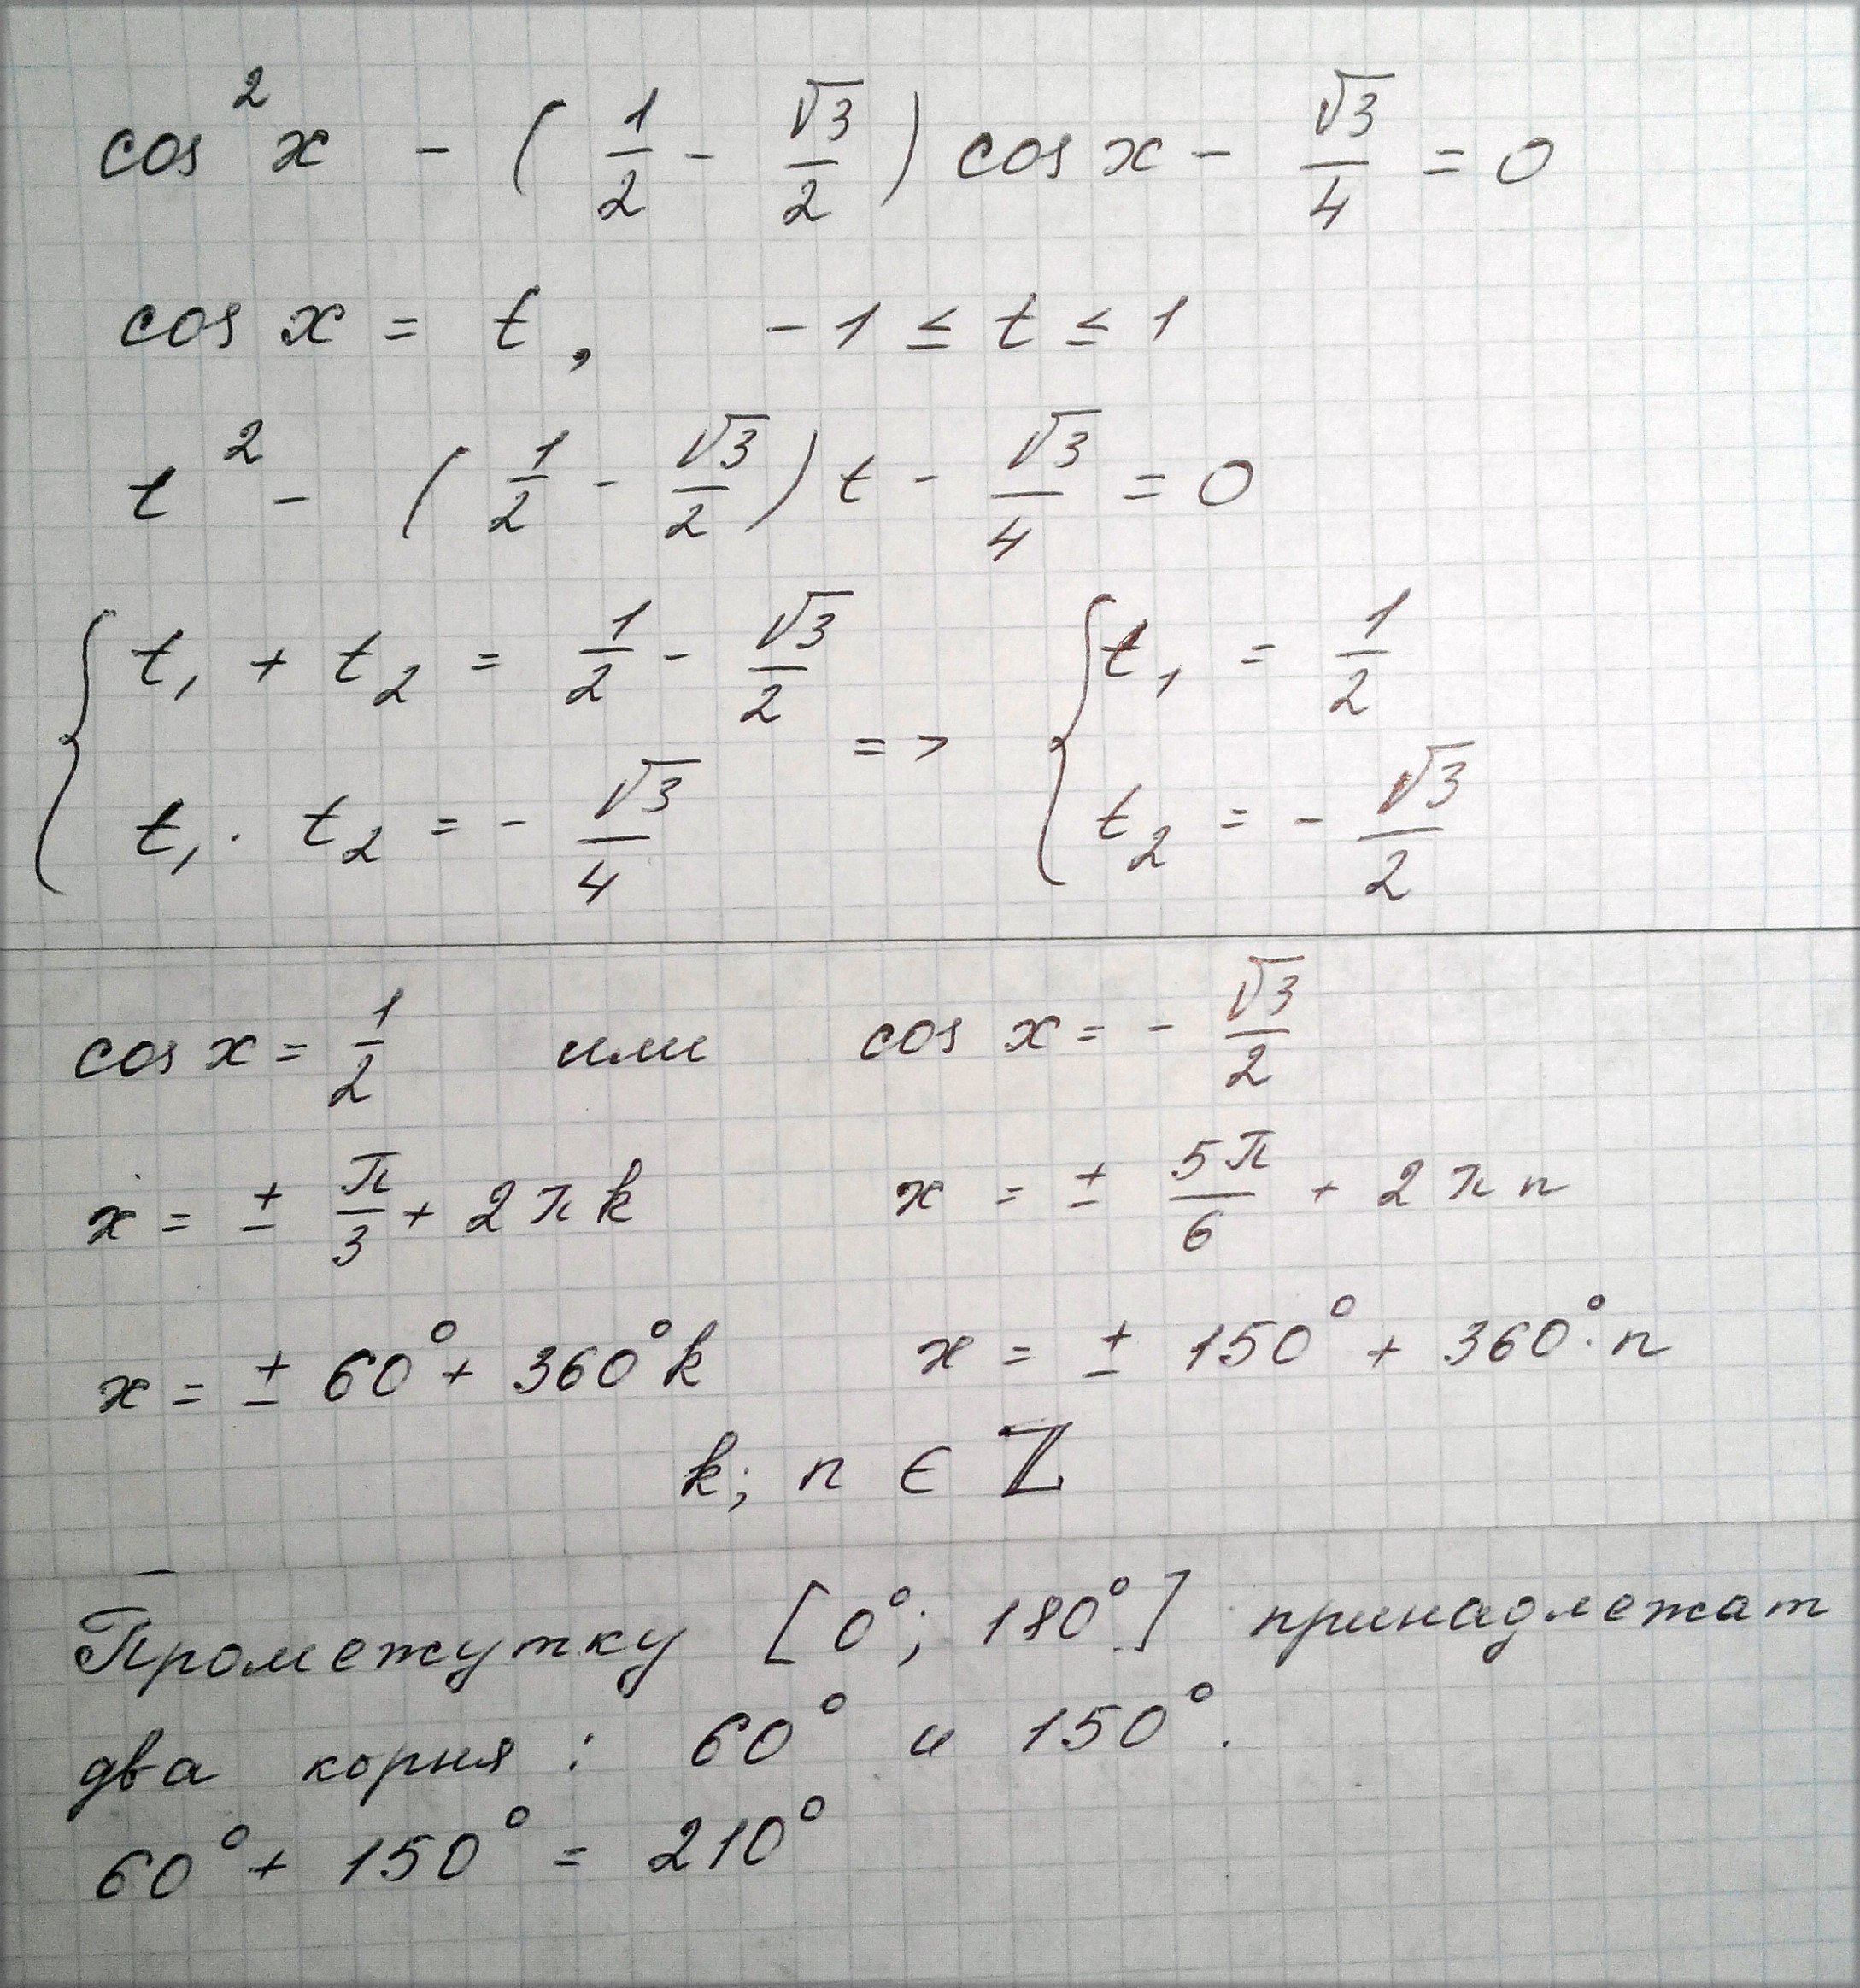 cos² x - (1/2 - √3/2) cos x - √3/4 = 0
cos x = t, -1 ≤ t ≤ 1
t² - (1/2 - √3/2) t - √3/4 = 0
{ t₁ + t₂ = 1/2 - √3/2
t₁ · t₂ = - √3/4
=> { t₁ = 1/2
t₂ = - √3/2
cos x = 1/2 или cos x = - √3/2
x = ± π/3 + 2πk x = ± 5π/6 + 2πn
x = ± 60° + 360°k x = ± 150° + 360°·n
k; n ∈ ℤ
Промежутку [0°; 180°] принадлежат
два корня: 60° и 150°.
60° + 150° = 210°